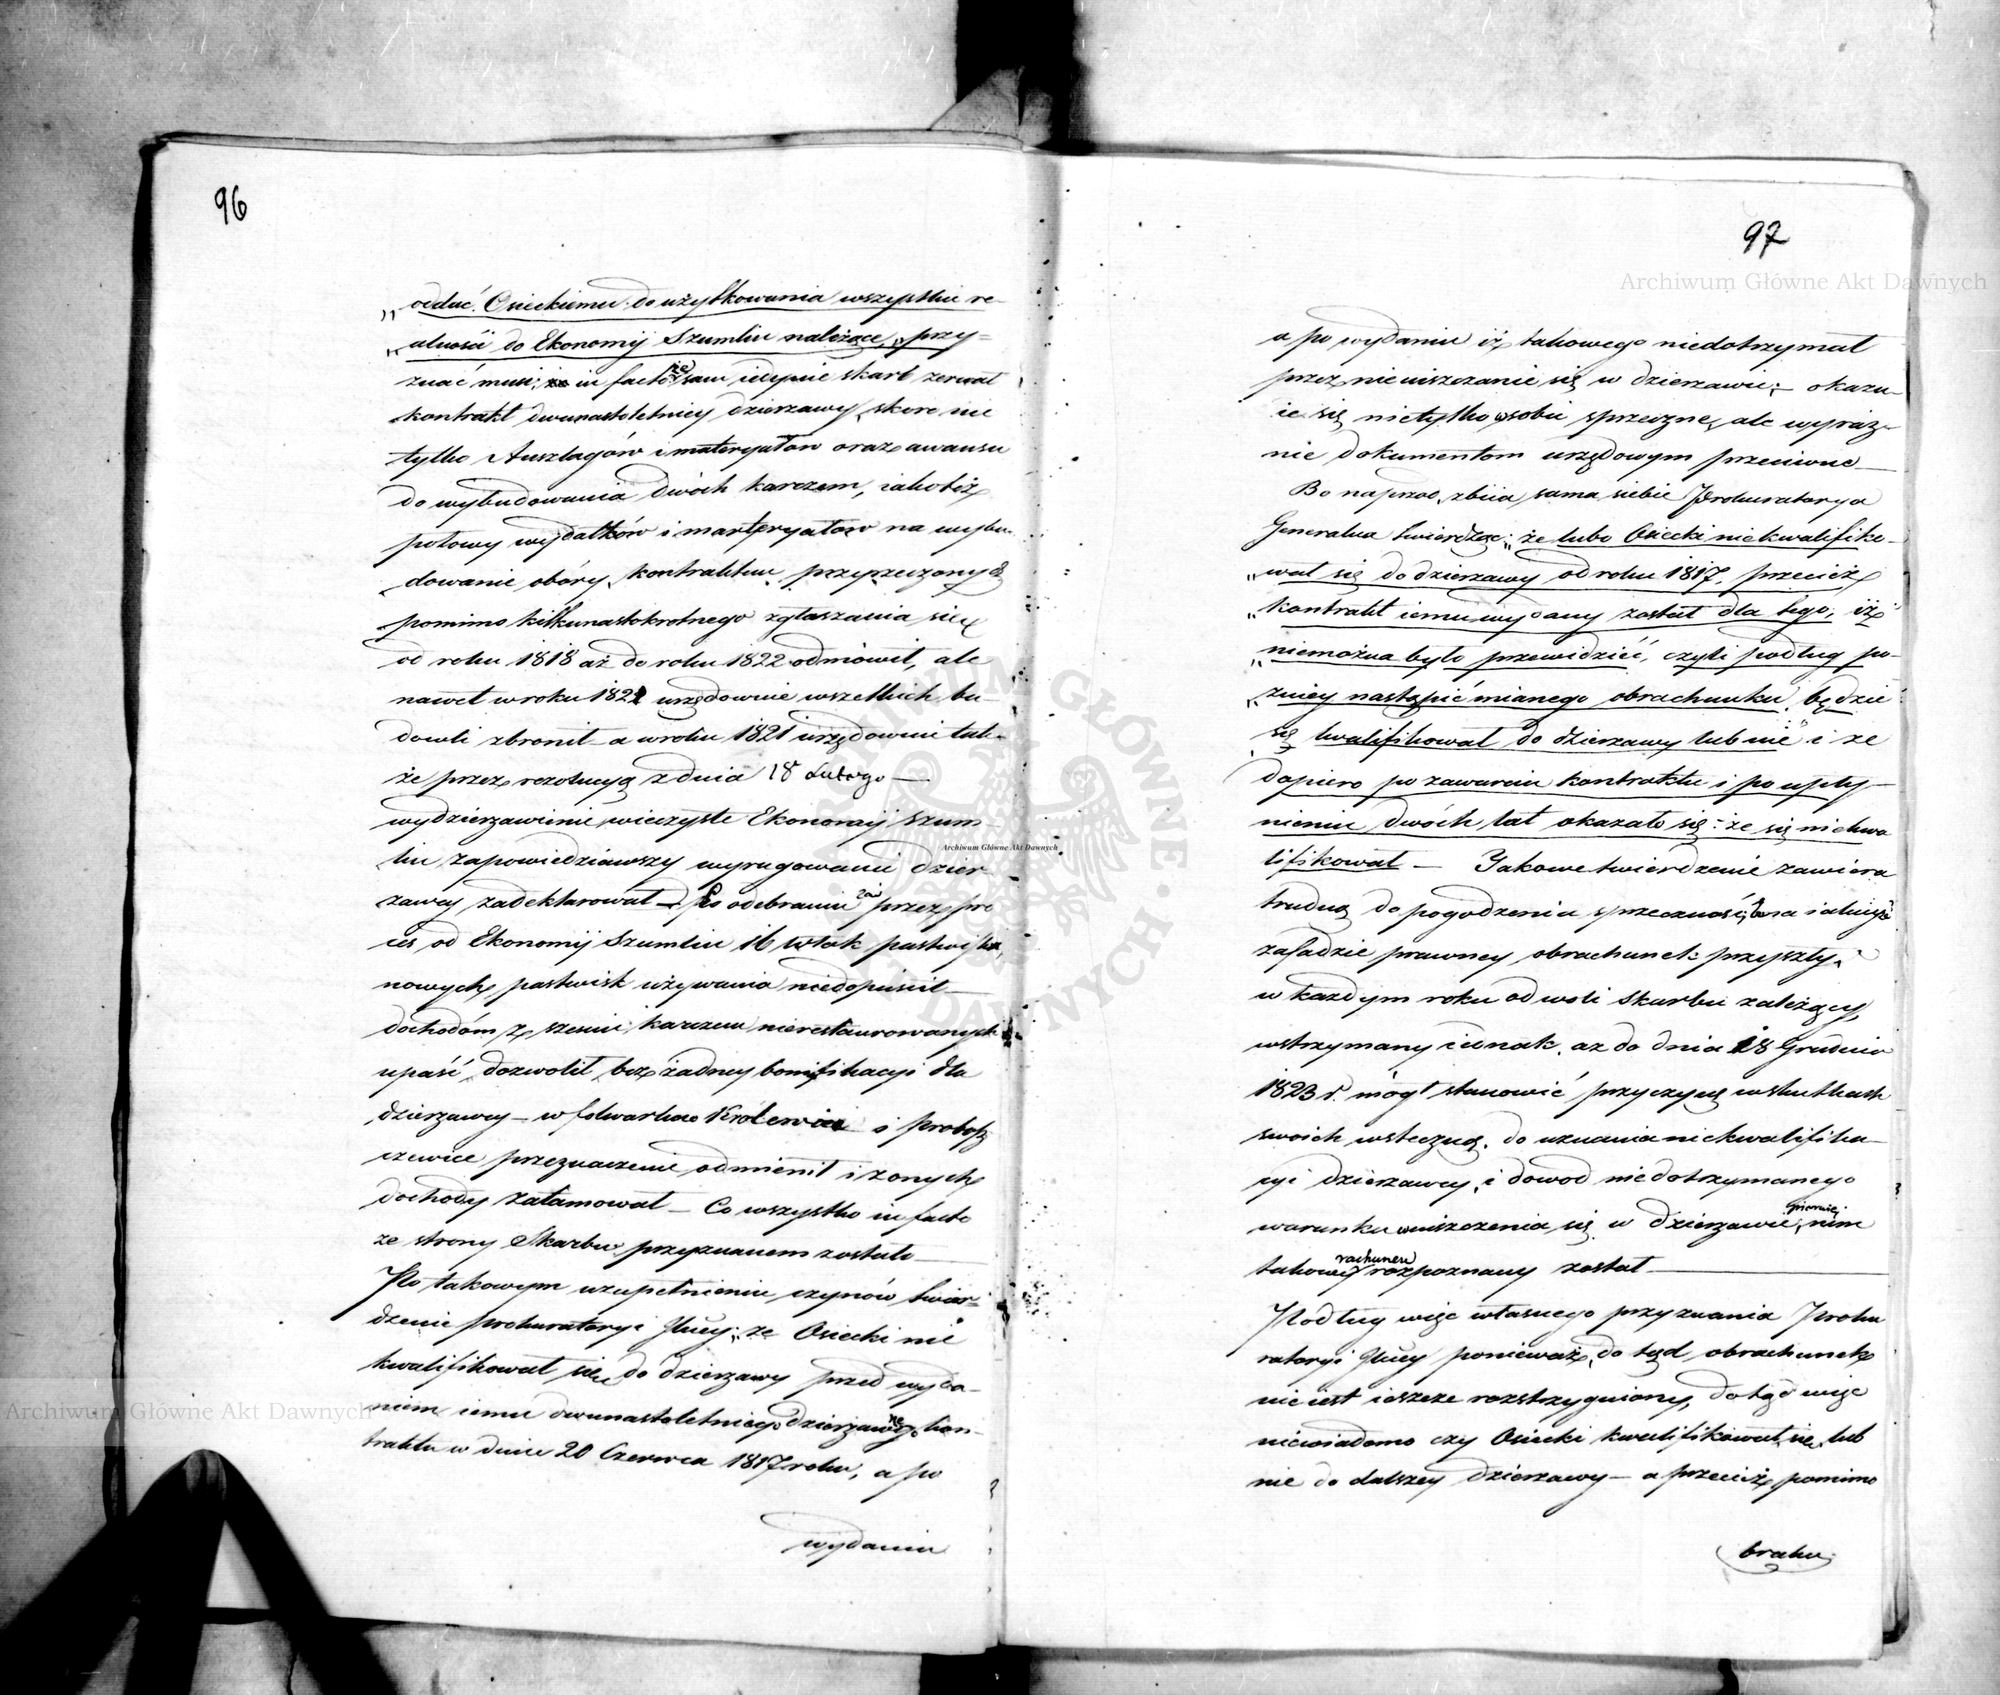 96
„oddać Osieckiemu do użytkowania wszystkie re-
„alności do Ekonomij Szumlin należące, „przy-
znać musi; in facto że sam iedynie skarb zerwał
kontrakt dwunastoletniey dzierzawy, skoro nie
tylko Auszlagów i materyałow oraz awansu
do wybudowania dwóch karczem, iakoteż
połowy wydatków i materyałow na wybu-
dowanie obóry, kontraktem przyrzeczonych
pomimo kilkunastokrotnego zgłaszania się
od roku 1818 aż do roku 1822 odmówił, ale
nawet w roku 1821 urzędownie wszelkich bu-
dowli zbronił – a w roku 1821 urzędownie tak-
że przez rezolucyą z dnia 18 Lutego —
wydzierzawienie wieczyste Ekonomij Szum-
lin zapowiedziawszy wyrugowanie dzier-
zawcy zadeklarował – Po odebraniu zaś przez pro
ces, od Ekonomij Szumlin 16 włok pastwiska,
nowych pastwisk używania niedopuścił —
dochodóm z sześciu karczem nierestaurowanych
upaść dozwolił, bez żadney bonifikacyi dla
dzierzawcy – w folwarkach Królewie i Probosz
czewice przeznaczenie odmienił i z onych
dochody zatamował – Co wszystko in facto
ze strony Skarbu przyznanem zostało —
Po takowym uzupełnieniu czynów twier-
dzenie prokuratoryi Głney; że Osiecki nie
kwalifikował się do dzierzawy przed wyda-
niem iemu dwunastoletniego dzierzawnego kon-
traktu w dniu 20 Czerwca 1817 roku, a po
wydaniu
97
a po wydaniu iż takowego niedotrzymał
przez nieuiszczanie się w dzierzawie; – okazu-
ie się nietylko w sobie sprzeczne, ale wyraz-
nie dokumentom urzędowym przeciwne —
Bo naprzod, zbiia sama siebie Prokuratorya
Generalna twierdząc; „że lubo Osiecki niekwalifiko-
„wał się do dzierzawy od roku 1817, przecież
„kontrakt iemu wydany został dla tego; iż
„niemożna było przewidzieć, czyli podług po-
„zniey nastąpić mianego obrachunku, będzie
się kwalifikował do dzierzawy lub nie" i że
dopiero po zawarciu kontraktu i po upły-
nieniu dwóch lat okazało się: że się niekwa
lifikował — Jakowe twierdzenie zawiera
trudną do pogodzenia sprzeczność, bo na iakieyże
zasadzie prawney, obrachunek przyszły,
w każdym roku od woli Skarbu zależący,
wstrzymany iednak, aż do dnia 18 Grudnia
1823 r. mógł stanowić przyczynę w skutkach
swoich wsteczną, do uznania niekwalifika-
cyi dzierzawcy, i dowod niedotrzymanego
warunku uiszczenia się w dzierzawie, pierwiey nim
takowy rachunek rozpoznany został —
Podług więc własnego przyznania Proku
ratoryi Głney ponieważ, do tąd obrachunek
nie iest ieszcze rozstrzygniony, dotąd więc
niewiadomo czy Osiecki kwalifikował się lub
nie do dalszey dzierzawy – a przecież pomimo
braku
Archiwum Główne Akt Dawnych
Archiwum Główne Akt Dawnych
Archiwum Główne Akt Dawnych